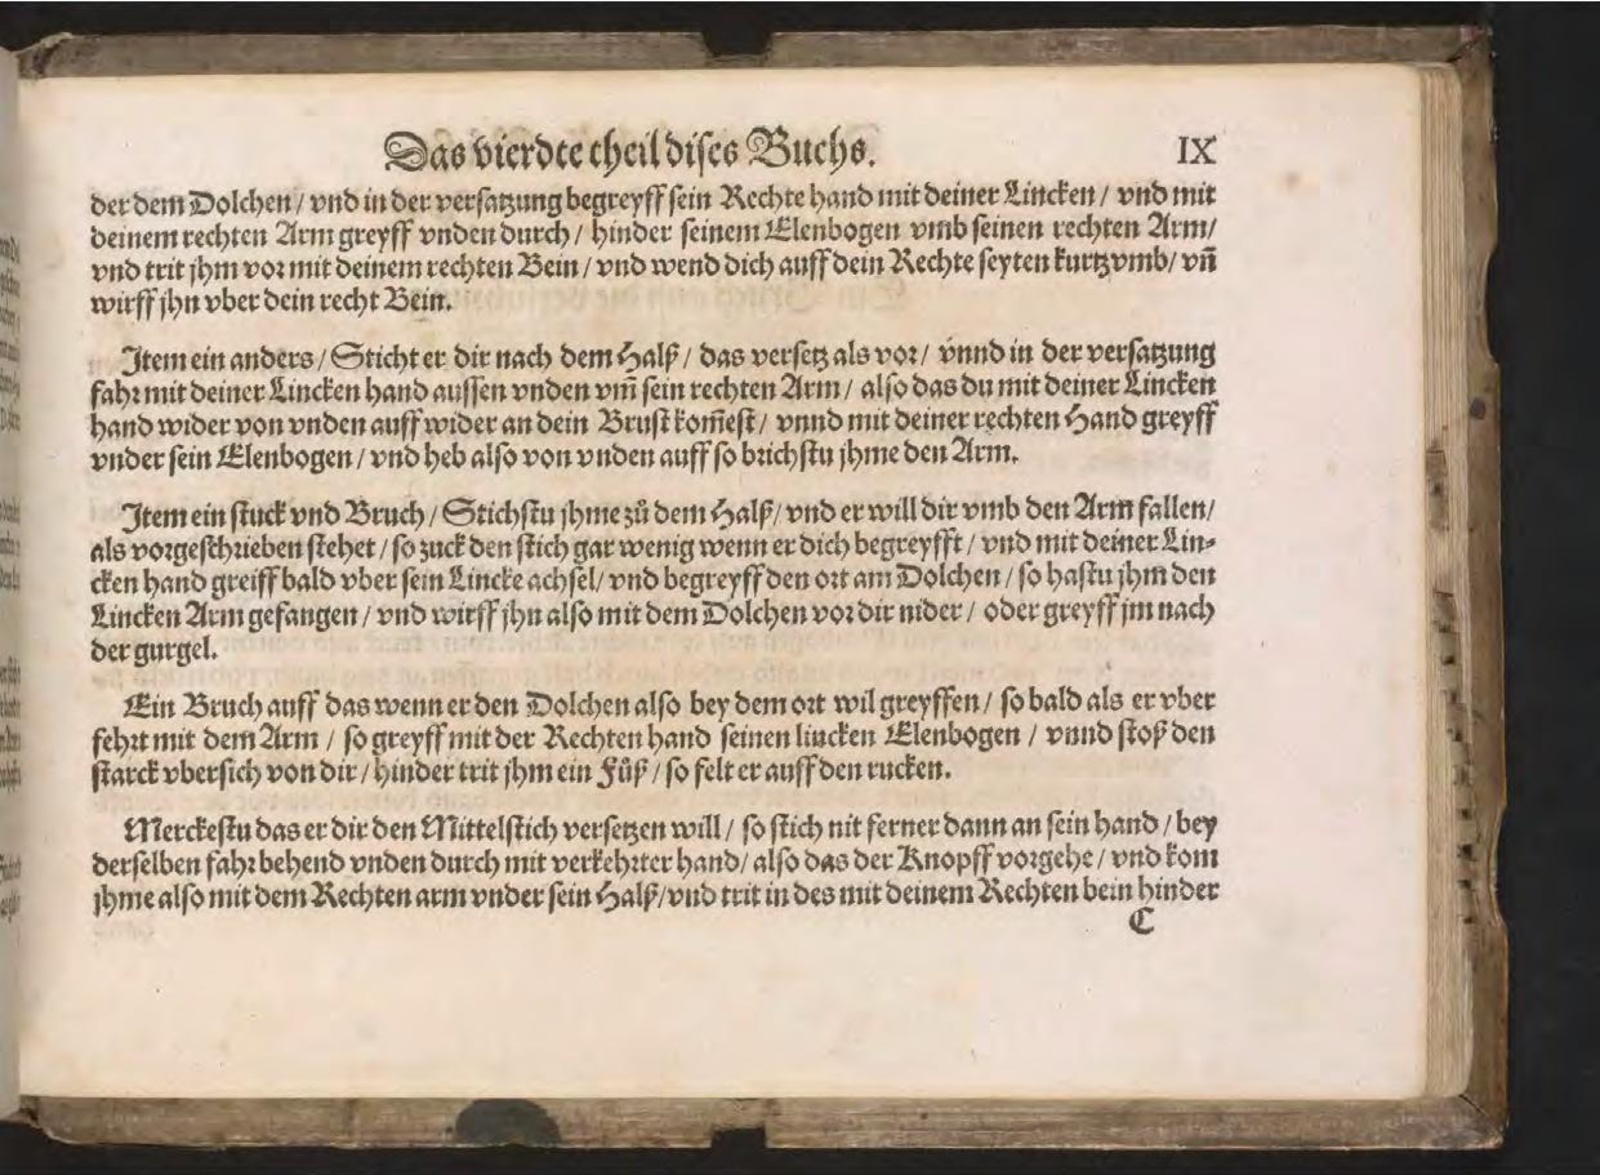 Das vierdte theil dises Buchs. IX
der dem Dolchen / vnd in der versatzung begreyff sein Rechte hand mit deiner Lincken / vnd mit
deinem rechten Arm greyff vnden durch / hinder seinem Elenbogen vmb seinen rechten Arm /
vnd trit jhm vor mit deinem rechten Bein / vnd wend dich auff dein Rechte seyten kurtz vmb / vñ
wirff jhn vber dein recht Bein.
Item ein anders / Sticht er dir nach dem Halß / das versetz als vor / vnnd in der versatzung
fahr mit deiner Lincken hand aussen vnden vm̃ sein rechten Arm / also das du mit deiner Lincken
hand wider von vnden auff wider an dein Brust kom̃est / vnnd mit deiner rechten Hand greyff
vnder sein Elenbogen / vnd heb also von vnden auff so brichstu jhme den Arm.
Item ein stuck vnd Bruch / Stichstu jhme zů dem Halß / vnd er will dir vmb den Arm fallen /
als vorgeschrieben stehet / so zuck den stich gar wenig wenn er dich begreyfft / vnd mit deiner Lin-
cken hand greiff bald vber sein Lincke achsel / vnd begreyff den ort am Dolchen / so hastu jhm den
Lincken Arm gefangen / vnd wirff jhn also mit dem Dolchen vor dir nider / oder greyff jm nach
der gurgel.
Ein Bruch auff das wenn er den Dolchen also bey dem ort wil greyffen / so bald als er vber
fehrt mit dem Arm / so greyff mit der Rechten hand seinen lincken Elenbogen / vnnd stoß den
starck vbersich von dir / hinder trit jhm ein Fůß / so felt er auff den rucken.
Merckestu das er dir den Mittelstich versetzen will / so stich nit ferner dann an sein hand / bey
derselben fahr behend vnden durch mit verkehrter hand / also das der Knopff vorgehe / vnd kom
jhme also mit dem Rechten arm vnder sein Halß / vnd trit in des mit deinem Rechten bein hinder
C